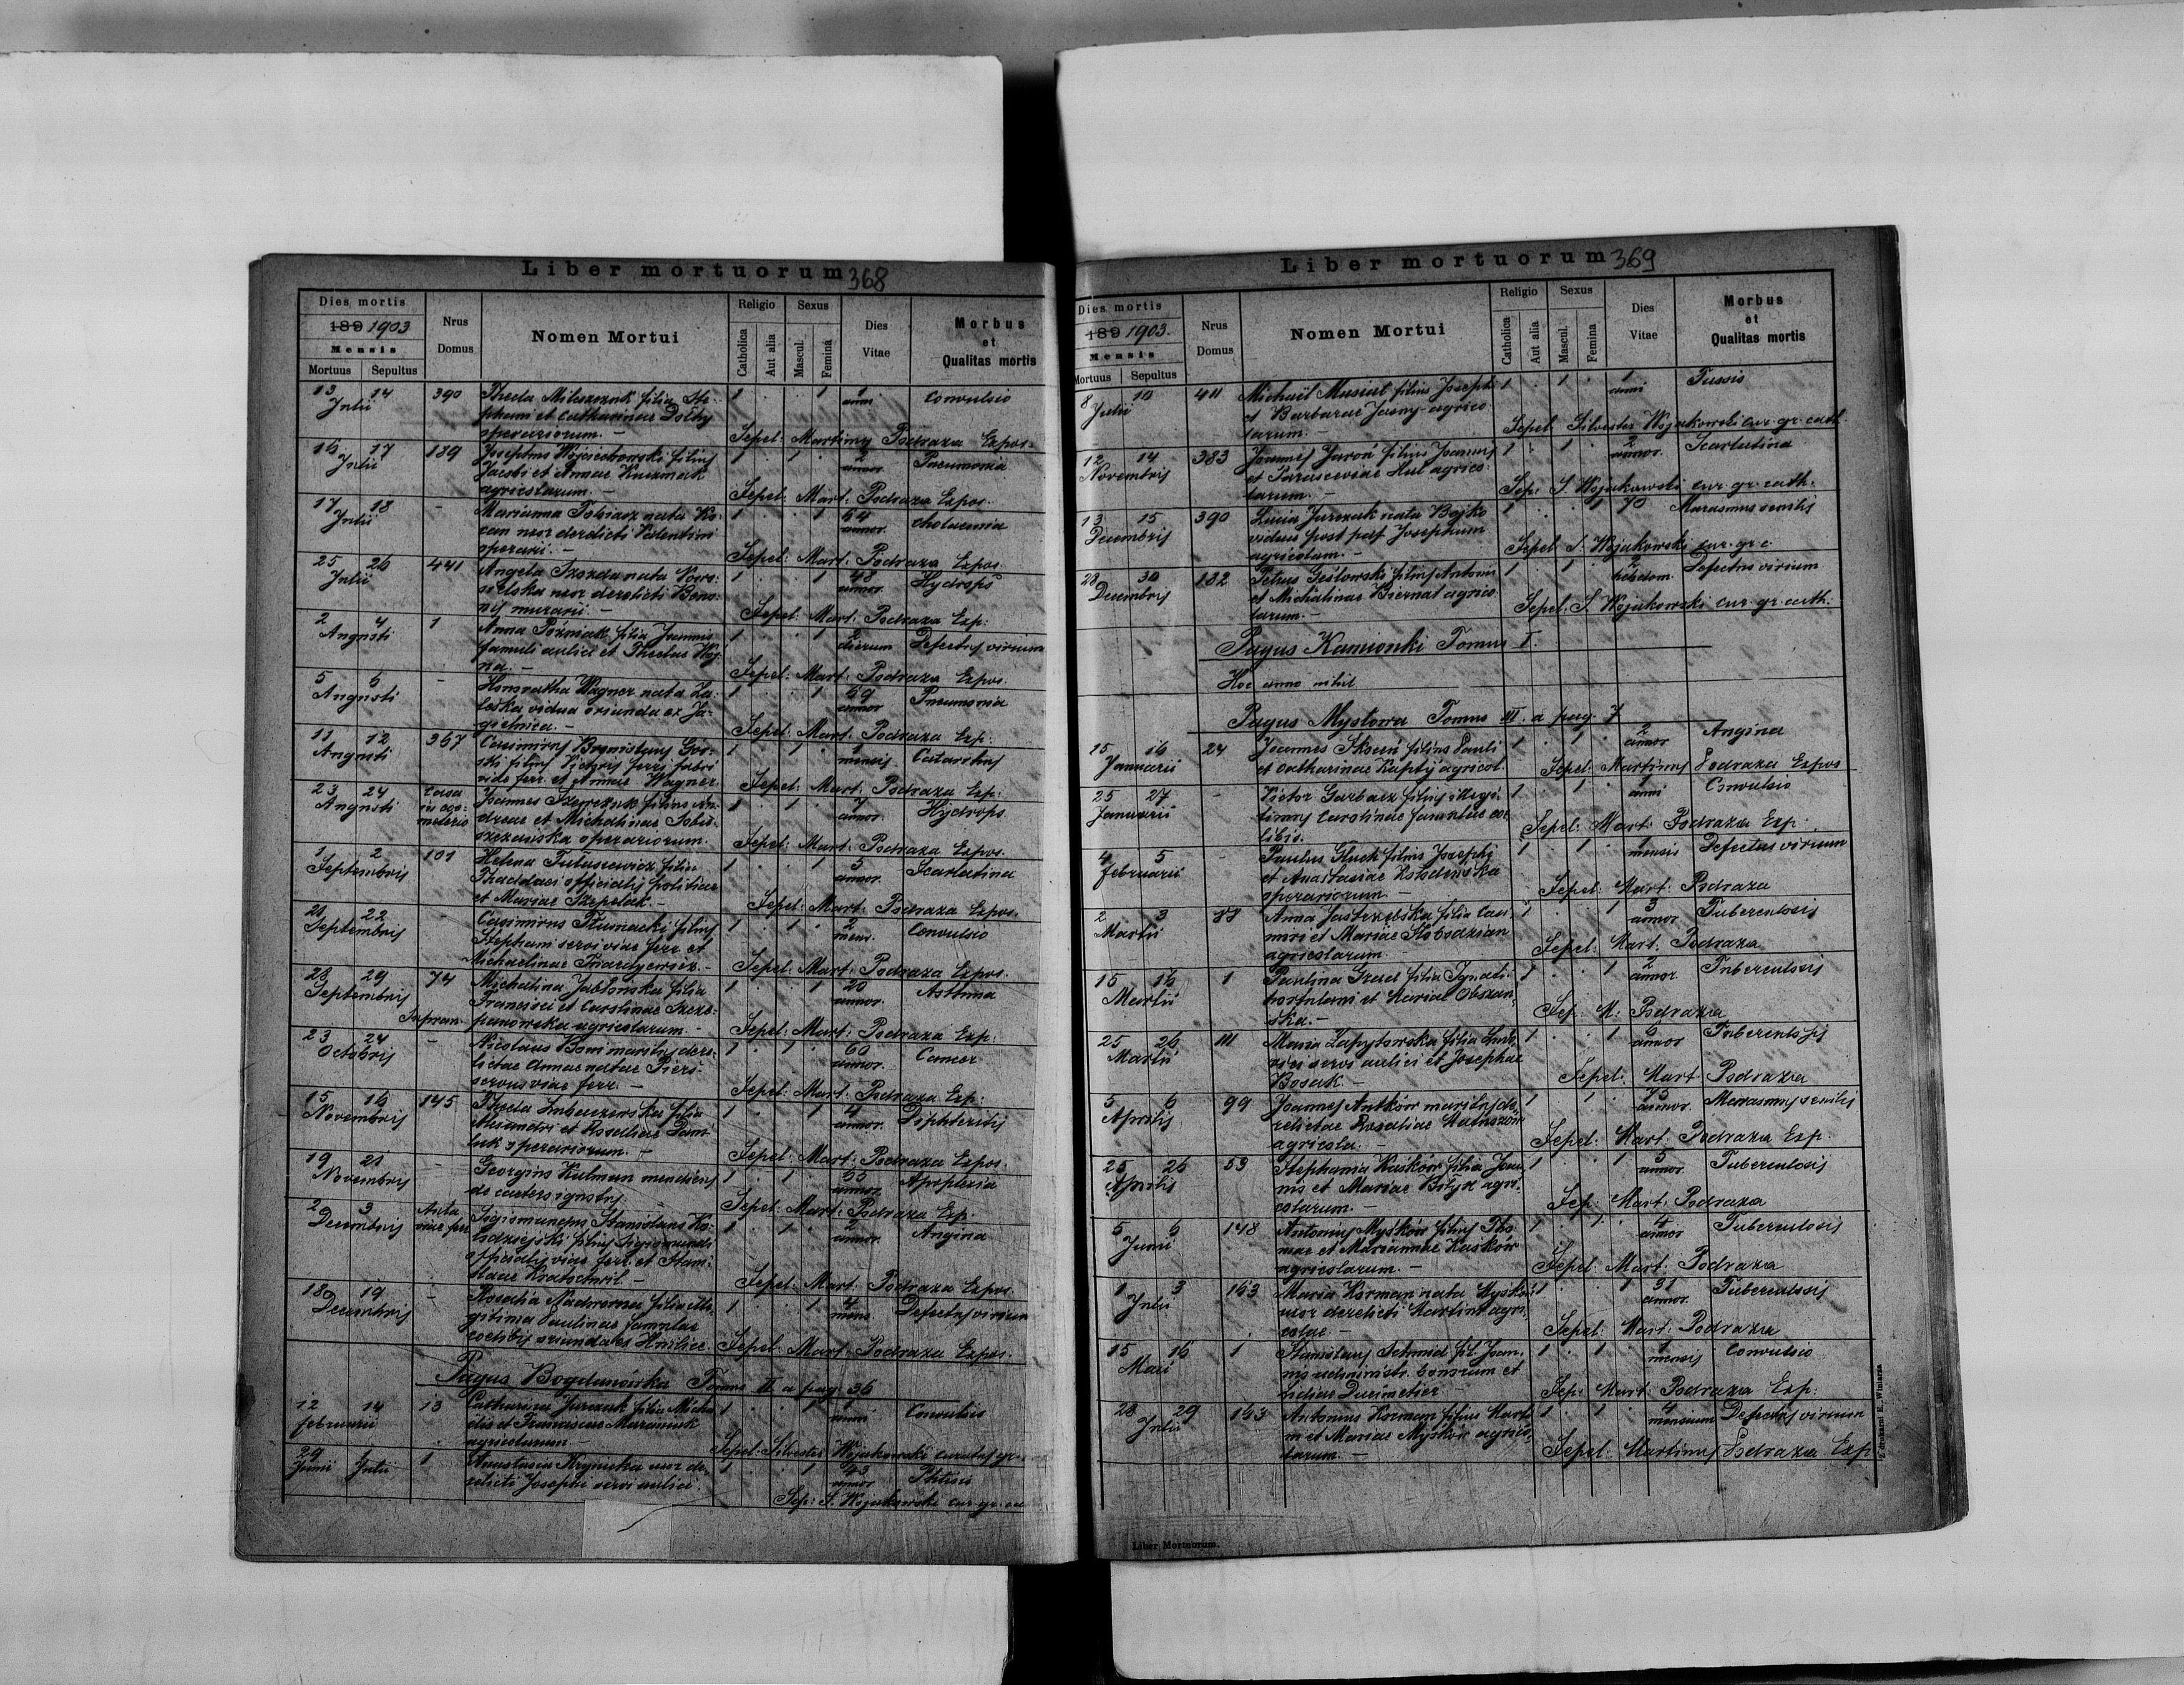 Liber mortuorum 368
Dies mortis
189 1903
Mensis
Mortuus Sepultus
Nrus Domus
Nomen Mortui
Religio
Catholica
Aut alia
Sexus
Mascul.
Femina
Dies Vitae
Morbus et Qualitas mortis
13 14 390 Thecla filia Ste- 1 1 1 Convulsio
Julii phani et Catharinae anni
operariorum. – Sepel: Martinus Podraza Expos:
16 17 139 Josephus Wojciechowski filius 1 1 2 Pneumonia
Julii Jacobi et Annae annor.
agricolarum. – Sepel: Mart: Podraza Expos.
17 18 - Marianna nata Ko- 1 1 64
Julii uxor derelicti Valentini annor.
operarii. – Sepel: Mart: Podraza Expos.
25 26 441 Angela nata 1 1 48 Hydrops
Julii uxor derelicti annor.
murarii. – Sepel: Mart: Podraza Exp:
2 4 1 Anna Poźniak filia Joannis 1 1 2 Defectus virium
Augusti famuli aulici et Theclae Woj- dierum
na. – Sepel: Mart: Podraza Expos.
5 6 - Honoratha Wagner nata Za- 1 1 69 Pneumonia
Augusti leska vidua oriunda ex Ja- annor
gielnica. – Sepel: Mart: Podraza Exp:
11 12 367 Casimirus Bronislaus Gór- 1 1 1 Catarrhus
Augusti ski filius fabri mensis
viae ferr. et Annae Wagner. Sepel: Mart: Podraza Exp:
23 24 Casa in coe- Joannes filius An- 1 1 7 Hydrops
Augusti meterio dreae et Michalinae annor.
operariorum. Sepel: Mart: Podraza Expos.
1 2 101 Helena filia 1 1 5 Scarlatina
Septembris Thaddaei officialis politiae annor.
et Mariae Szepelak. – Sepel: Mart: Podraza Expos.
21 22 - Casimirus Tłumacki filius 1 1 2 Convulsio
Septembris Stephani servi viae ferr. et mens.
Michaelinae – Sepel: Mart: Podraza Expos.
28 29 74 Michalina Jabłońska filia 1 1 20 Asthma
Septembris Francisci et Carolinae Szcze- annor.
panowska agricolarum. – Sepel: Mart: Podraza Exp:
23 24 - Nicolaus maritus dere- 1 1 60 Cancer
Octobris lictae Annae natae annor.
servus viae ferr. – Sepel: Mart: Podraza Exp:
15 16 145 Thecla filia 1 1 4 Diphteritis
Novembris Alexandri et Rosaliae annor.
operariorum. – Sepel: Mart: Podraza Expos.
19 21 - Georgius Kulman mendicus 1 1 55 Apoplexia
Novembris de caetero ignotus annor.
Sepel: Mart: Podraza Exp.
2 3 Sigismundus Stanislaus Ko- 1 1 2 Angina
Decembris viae ferr. filius Sigismundi annor.
officialis viae ferr. et Stani-
slaae – Sepel: Mart: Podraza Expos.
18 19 - Rosalia Nadworna filia ille- 1 1 4 Defectus virium
Decembris gitima Paulinae famulae mens.
coelibis oriunda ex Sepel: Mart: Podraza Expos.
Pagus Bogdanówka Tomus II a pag. 36
12 14 13 Catharina Jurczak filia Micha- 1 1 1 Convulsio
Februarii elis et Franciscae anni
agricolarum Sepel: Silvester Wojakowski curatus gr.
29 1 Anastasia uxor de- 1 1 43 Phtisis
Junii Julii relicti Josephi servi aulici. annor
Sep: S. Wojakowski cur. gr. ca
Liber mortuorum 369
Dies mortis
189 1903.
Mensis
Mortuus Sepultus
Nrus Domus
Nomen Mortui
Religio
Catholica
Aut alia
Sexus
Mascul.
Femina
Dies Vitae
Morbus et Qualitas mortis
8 10 411 Michaël Musiał filius Josephi 1 1 1 Tussis
Julii et Barbarae Jasny agrico- anni
larum. – Sepel: Silvester Wojakowski cur. gr. cath.
12 14 383 Joannes Jaroń filius Joannis 1 1 2 Scarlatina
Novembris et Parasceviae Hul agrico- annor.
larum. – Sep: S. Wojakowski cur. gr. cath.
13 15 390 Lucia Jurczak nata Bojko 1 1 70 Marasmus senilis
Decembris vidua post Josephum
agricolam. – Sepel: S. Wojakowski cur. gr. c
28 30 132 Petrus filius Antonii 1 1 2 Defectus virium
Decembris et Michalinae Biernat agrico- hebdom.
larum. – Sepel: S. Wojakowski cur. gr. cath.
Pagus Kamionki Tomus I.
Hoc anno nihil
Pagus Mysłowa Tomus III. a pag. 7
15 16 24 Joannes Skoreń filius Pauli 1 1 2 Angina
Januarii et Catharinae Kapty agricol. annor
Sepel: Martinus Podraza Expos
25 27 - Victor Garbacz filius illegi- 1 1 1 Convulsio
Januarii timus Carolinae famulae coe- anni
libis. Sepel: Mart: Podraza Exp:
4 5 - Paulus Gluch filius Josephi 1 1 1 Defectus virium
Februarii et Anastasiae mensis
operariorum – Sepel: Mart: Podraza
2 3 Anna Jastrzębska filia Casi- 1 1 3 Tuberculosis
Martii miri et Mariae Słobodzian annor.
agricolarum. – Sepel: Mart: Podraza
15 16 1 Paulina filia Ignatii 1 1 2 Tuberculosis
Martii hortulani et Mariae Obszań- annor.
ska. – Sep: M: Podraza
25 26 111 Maria filia Ludo- 1 1 6 Tuberculosis
Martii vici servi aulici et Josephae annor
Bosak. – Sepel: Mart: Podraza
5 6 99 Joannes Antków maritus de- 1 1 75 Marasmus senilis
Aprilis relictae Rosaliae annor.
agricola. – Sepel: Mart: Podraza Exp.
25 26 59 Stephania Kuśków filia Joan- 1 1 5 Tuberculosis
Aprilis nis et Mariae agri- annor
colarum. – Sep: Mart: Podraza
5 6 148 Antonius Myśków filius Tho- 1 1 4 Tuberculosis
Junii mae et Mariannae Kuśków annor
agricolarum. – Sepel: Mart: Podraza
1 3 163 Maria Korman nata Myśków 1 1 31 Tuberculosis
Julii uxor derelicti Martini agri- annor.
colae. – Sepel: Mart: Podraza
15 16 1 Stanislaus Schmid fil. Joan- 1 1 1 Convulsio
Maii nis administr. bonorum et mensis
Lidiae – Sep: Mart: Podraza Exp:
28 29 163 Antonius Korman filius Marti- 1 1 4 Defectus virium
Julii ni et Mariae Myśków agrico- mensium
larum. – Sepel: Martinus Podraza Exp
Liber Mortuorum.
Z drukarni E. Winiarza